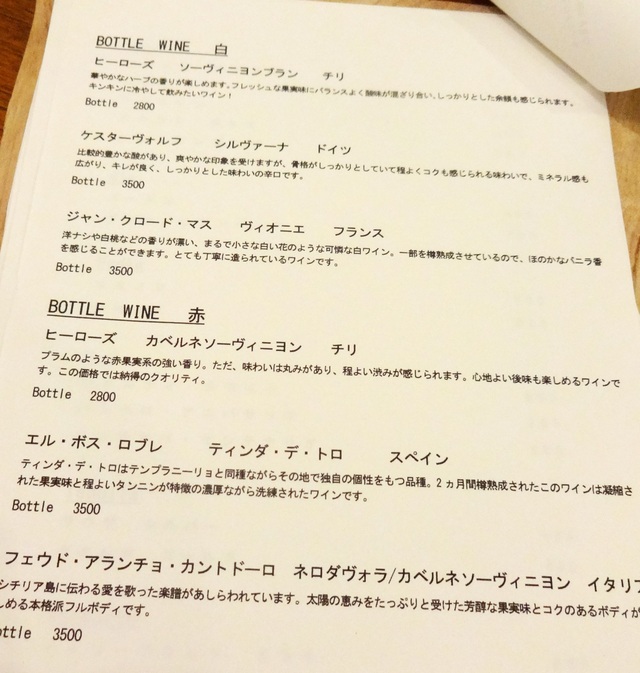 BOTTLE WINE 白
ヒーローズ ソーヴィニヨンブラン チリ
華やかなハーブの香りが楽しめます。フレッシュな果実味にバランスよく酸味が混ざり合い、しっかりとした余韻も感じられます。
キンキンに冷やして飲みたいワイン！
Bottle 2800
ケスターヴォルフ シルヴァーナ ドイツ
比較的豊かな酸があり、爽やかな印象を受けますが、骨格がしっかりとしていて程よくコクも感じられる味わいで、ミネラル感も
広がり、キレが良く、しっかりとした味わいの辛口です。
Bottle 3500
ジャン・クロード・マス ヴィオニエ フランス
洋ナシや白桃などの香りが漂い、まるで小さな白い花のような可憐な白ワイン。一部を樽熟成させているので、ほのかなバニラ香
を感じることができます。とても丁寧に造られているワインです。
Bottle 3500
BOTTLE WINE 赤
ヒーローズ カベルネソーヴィニヨン チリ
プラムのような赤果実系の強い香り。ただ、味わいは丸みがあり、程よい渋みが感じられます。心地よい後味も楽しめるワインで
す。この価格では納得のクオリティ。
Bottle 2800
エル・ボス・ロブレ ティンダ・デ・トロ スペイン
ティンダ・デ・トロはテンプラニーリョと同種ながらその地で独自の個性をもつ品種。2ヵ月間樽熟成されたこのワインは凝縮さ
れた果実味と程よいタンニンが特徴の濃厚ながら洗練されたワインです。
Bottle 3500
フェウド・アランチョ・カントドーロ ネロダヴォラ/カベルネソーヴィニヨン イタリア
シチリア島に伝わる愛を歌った楽譜があしらわれています。太陽の恵みをたっぷりと受けた芳醇な果実味とコクのあるボディが
しめる本格派フルボディです。
ottle 3500